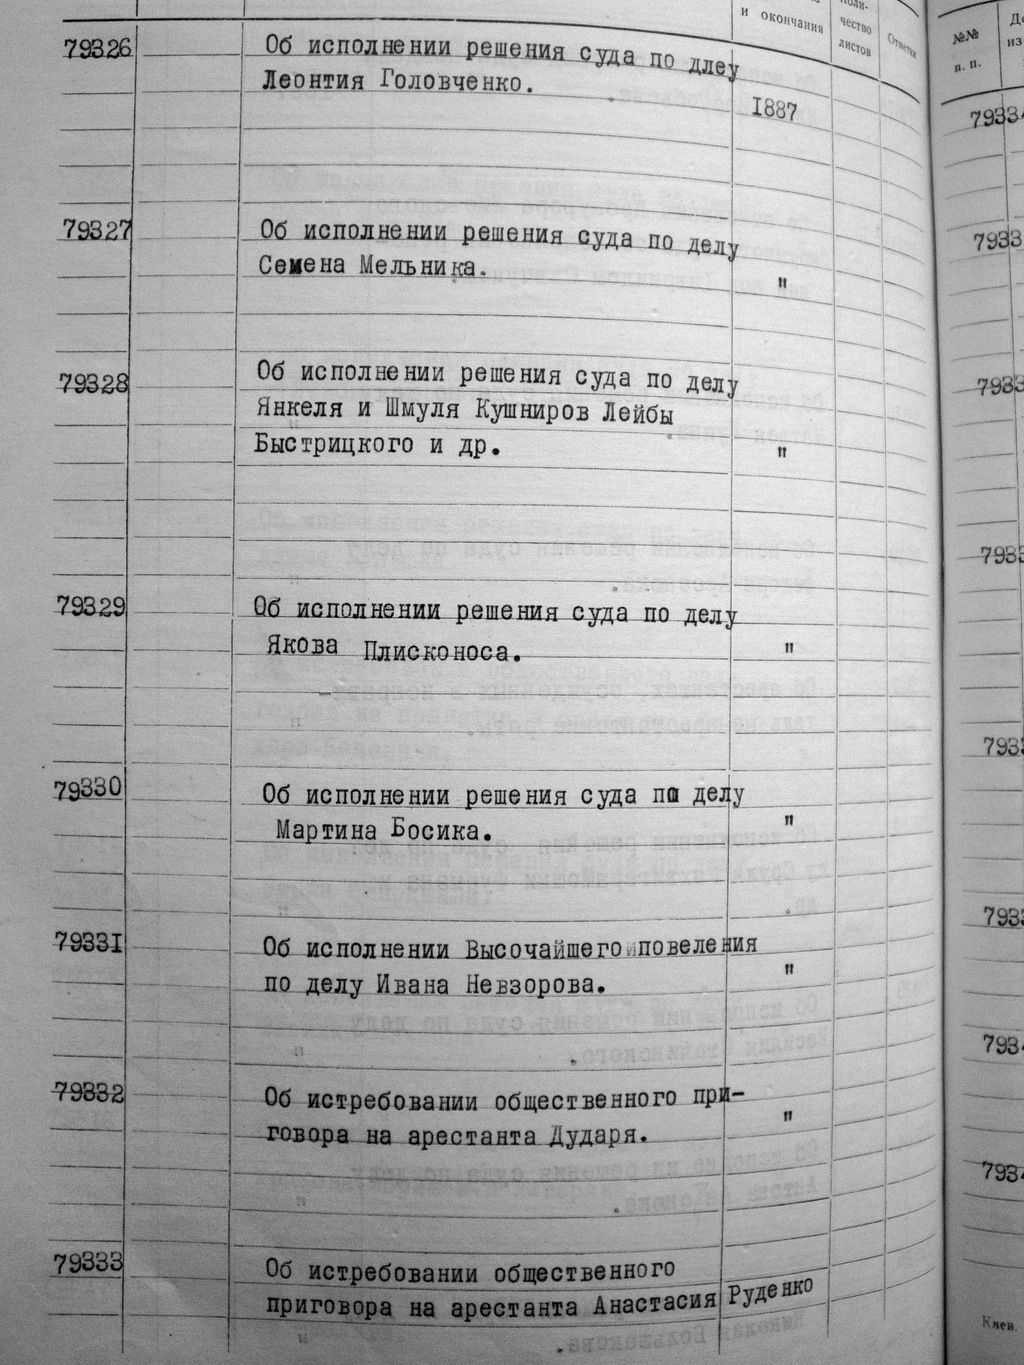 и окончания
чество
листов
Отметки
79326
Об исполнении решения суда по длеу
Леонтия Головченко.
1887
79327
Об исполнении решения суда по делу
Семена Мельника.
"
79328
Об исполнении решения суда по делу
Янкеля и Шмуля Кушниров Лейбы
Быстрицкого и др.
"
79329
Об исполнении решения суда по делу
Якова Плисконоса.
"
79330
Об исполнении решения суда по делу
Мартина Босика.
"
79331
Об исполнении Высочайшего повеления
по делу Ивана Невзорова.
"
79332
Об истребовании общественного при-
говора на арестанта Дударя.
"
79333
Об истребовании общественного
приговора на арестанта Анастасия Руденко
№№
п. п.
Киев.